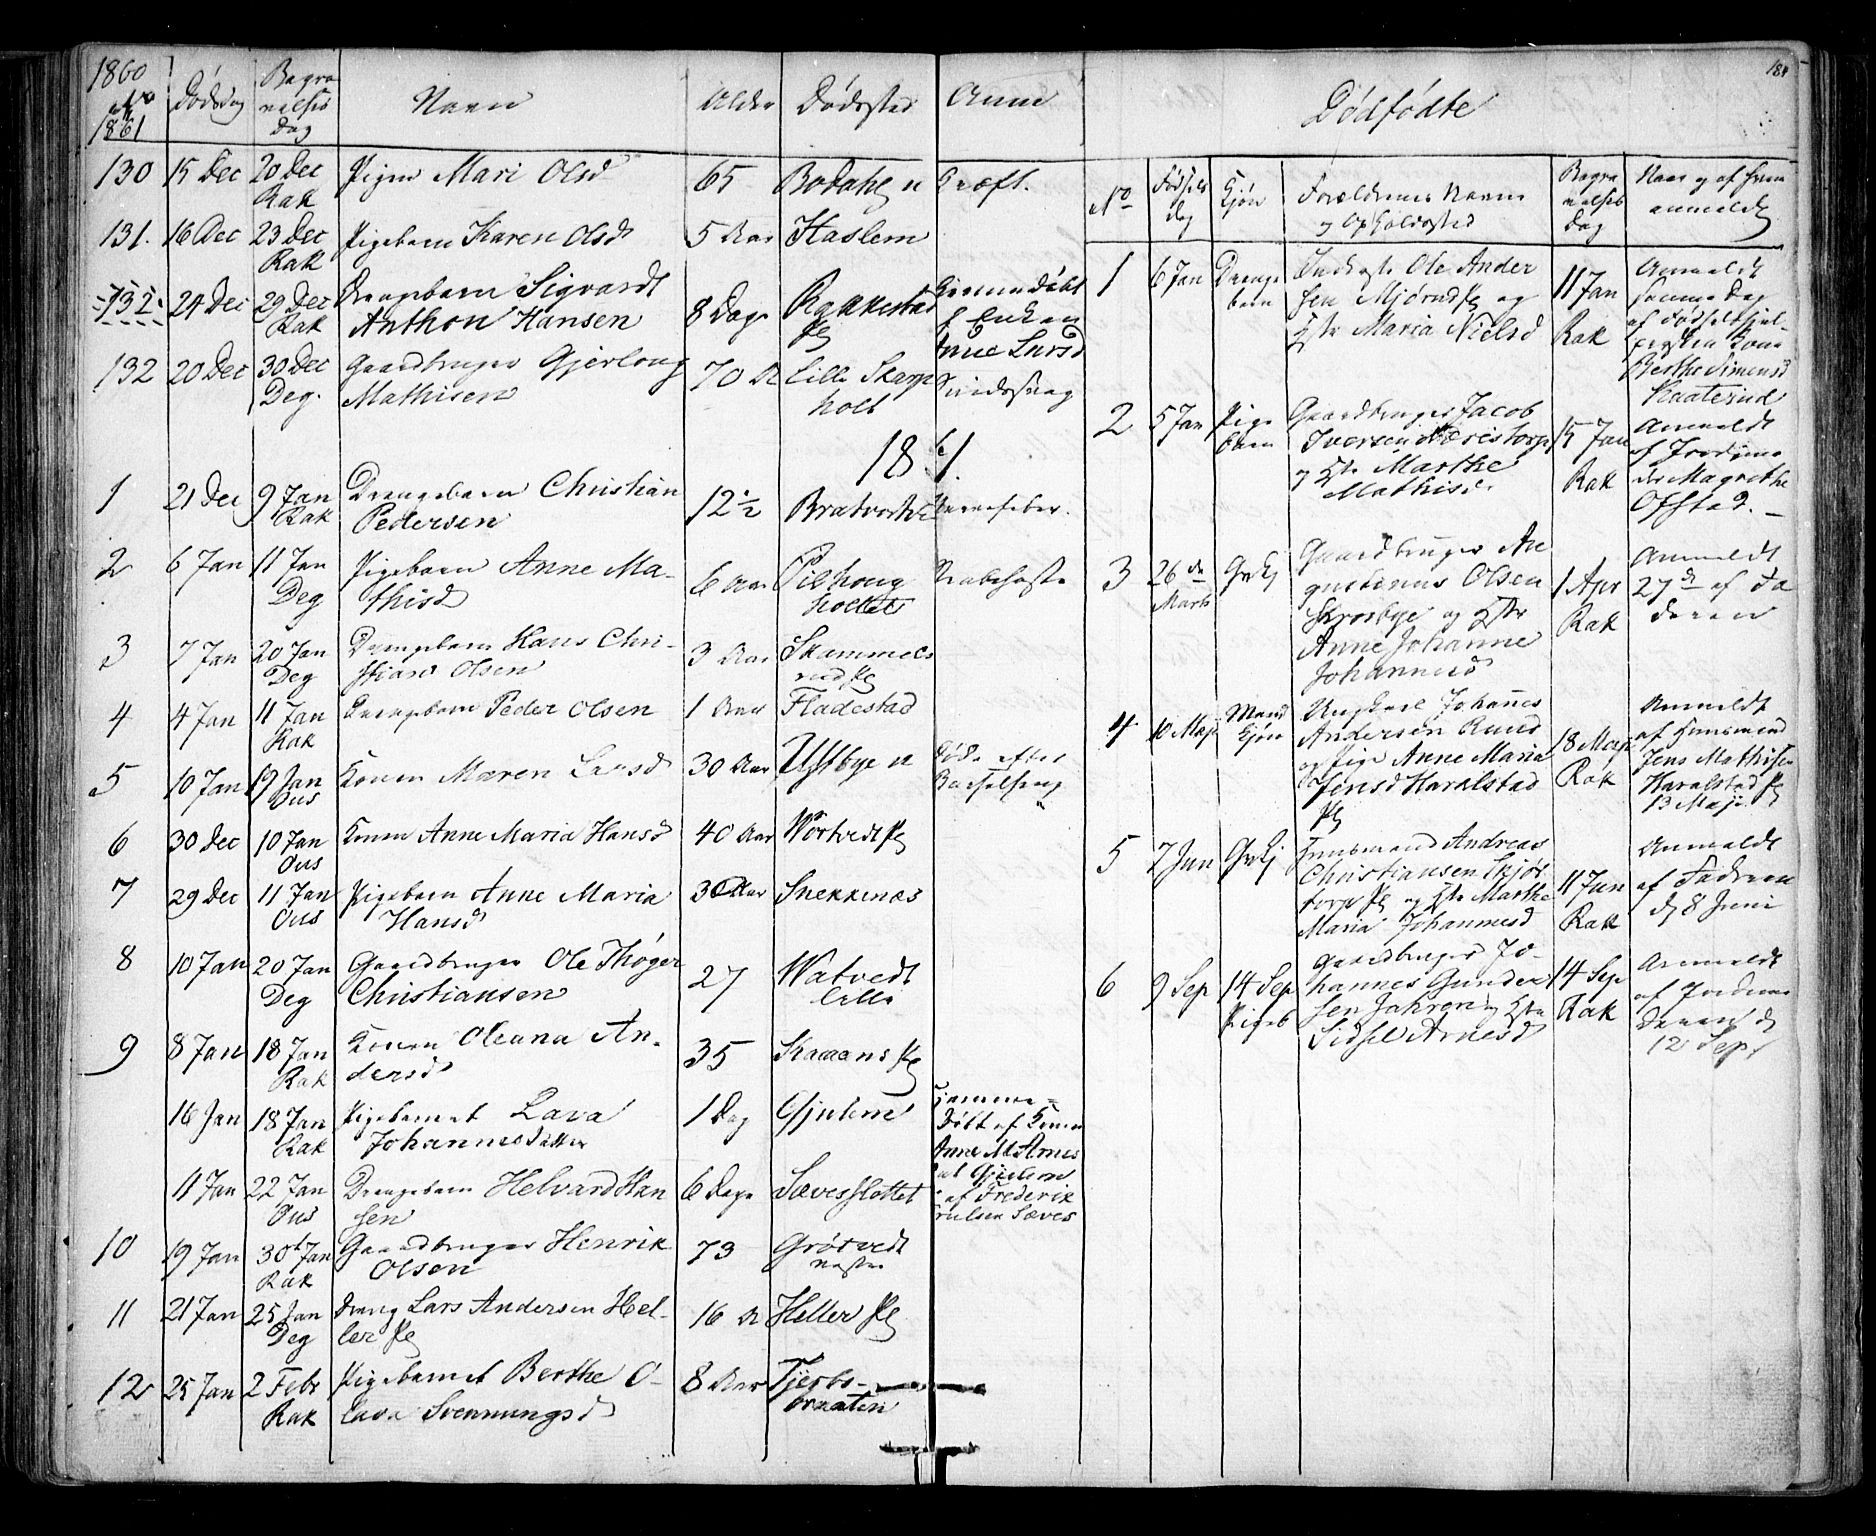 1860
No
1861
Dødsdag
Begravelses Dag
Navn
Alder
Dødssted
Anm
130 15 Dec 20 Dec Rak Pigen Mari Olsd 65 Bodahl n Kræft.
131. 16 Dec 23 Dec Rak Pigebarn Karen Olsd 5 Aar Haslem
132. 24 Dec 29 Dec Rak Drengebarn Sigvardt
Anthon Hansen 8 Dage Rakkestad Pl Hjemmedøbt
af Enken
Anne Larsd
132 20 Dec 30 Dec Deg. Gaardbruger Gjerloug
Mathisen 70 A Lille Skarp
holt
1861.
1 21 Dec 9 Jan Rak Drengebarn Christian
Pedersen 12 ½ Nervefeber.
2 6 Jan 11 Jan Deg Pigebarn Anne Ma-
thisd 6 Aar Pilhoug
holtet
3 7 Jan 20 Jan Deg Drengebarn Hans Chri-
stian Olsen 3 Aar Skammels
rud Pl
4 4 Jan 11 Jan Rak Drengebarn Peder Olsen 1 Aar Fladestad
5 10 Jan 19 Jan Ous Konen Maren Larsd 30 Aar Ystbye n Døde efter
Barselseng
6 30 Dec 10 Jan Ous Konen Anne Maria Hansd 40 Aar Wortvedt Pl
7 29 Dec 11 Jan Ous Pigebarn Anne Maria
Hansd 3 Aar Snekkenæs
8 10 Jan 20 Jan Deg Gaardbruger Ole Thøger
Christiansen 27 Watvedt
Lille
9 8 Jan 18 Jan Rak Konen Oleana An-
dersd 35 Pl
16 Jan 18 Jan Rak Pigebarnet Lava
Johannesdatter 1 Dag Gjulem Hjemme-
døbt af Konen
Anne M Arnes
Gjulem
11 Jan 22 Jan Ous Drengebarn Helvard Han
sen 6 Dage Sævesslottet af Frederik
Sæves
10 19 Jan 30t Jan Rak Gaardbruger Henrik
Olsen 73 Grøtvedt
vestre
11 21 Jan 25 Jan Deg Dreng Lars Andersen Hel-
ler Pl 16 A Heller Pl
12 25 Jan 2 Febr Rak Pigebarnet Berthe O-
lava Svennungsd 8 Aar Tjerbs-
braaten
184
Dødfødte
No
Fødsels
dag
Kjøn
Forældrenes Navne
og Opholdssted
Begravelses
Dag
Naar og af hvem
anmeldt
1 6 Jan Drenge
barn Inderste Ole Ander
sen Pl og
Hstr Maria Nielsd 11 Jan Rak Anmeldt
samme Dag
af Fødselshjel-
persken Kone
Berthe Simensd
Kaaterud
2 5 Jan Pige
barn Gaardbruger Jacob
Iversen Næristorp
og Hstr Marthe
Mathisd. 15 Jan Rak Anmeldt
af Jordemo
der Magrethe
Offstad. —
3 26 de
Marts Qvkj Gaardbruger Au
gustinus Olsen
Skrosbye og Hstr
Anne Johanne
Johannesd 1 Apr Rak Anmeldt
27 de af Fa
deren
4 10 Maj Mand
kjøn Ungkarl Johannes
Andersen Ruud
og Pige Anne Maria
Jensd Haralstad
Pl 18 Maj Rak Anmeldt
af Huusmand
Jens Mathisen
Haralstad Pl
13 Maj
5 7 Jun Qvkj Huusmand Andreas
Christiansen Skjøs
torp Pl og Hstr Marthe
Maria Johannesd 11 Jun Rak Anmeldt
af Faderen
d 8 Juni
6 9 Sep 14 Sep
Pigeb Gaardbruger Jo-
hannes Gunder
sen Jahren og Hstr
Sidsel Arnesd 14 Sep Rak Anmeldt
af Jordmo
deren d
12 Sept